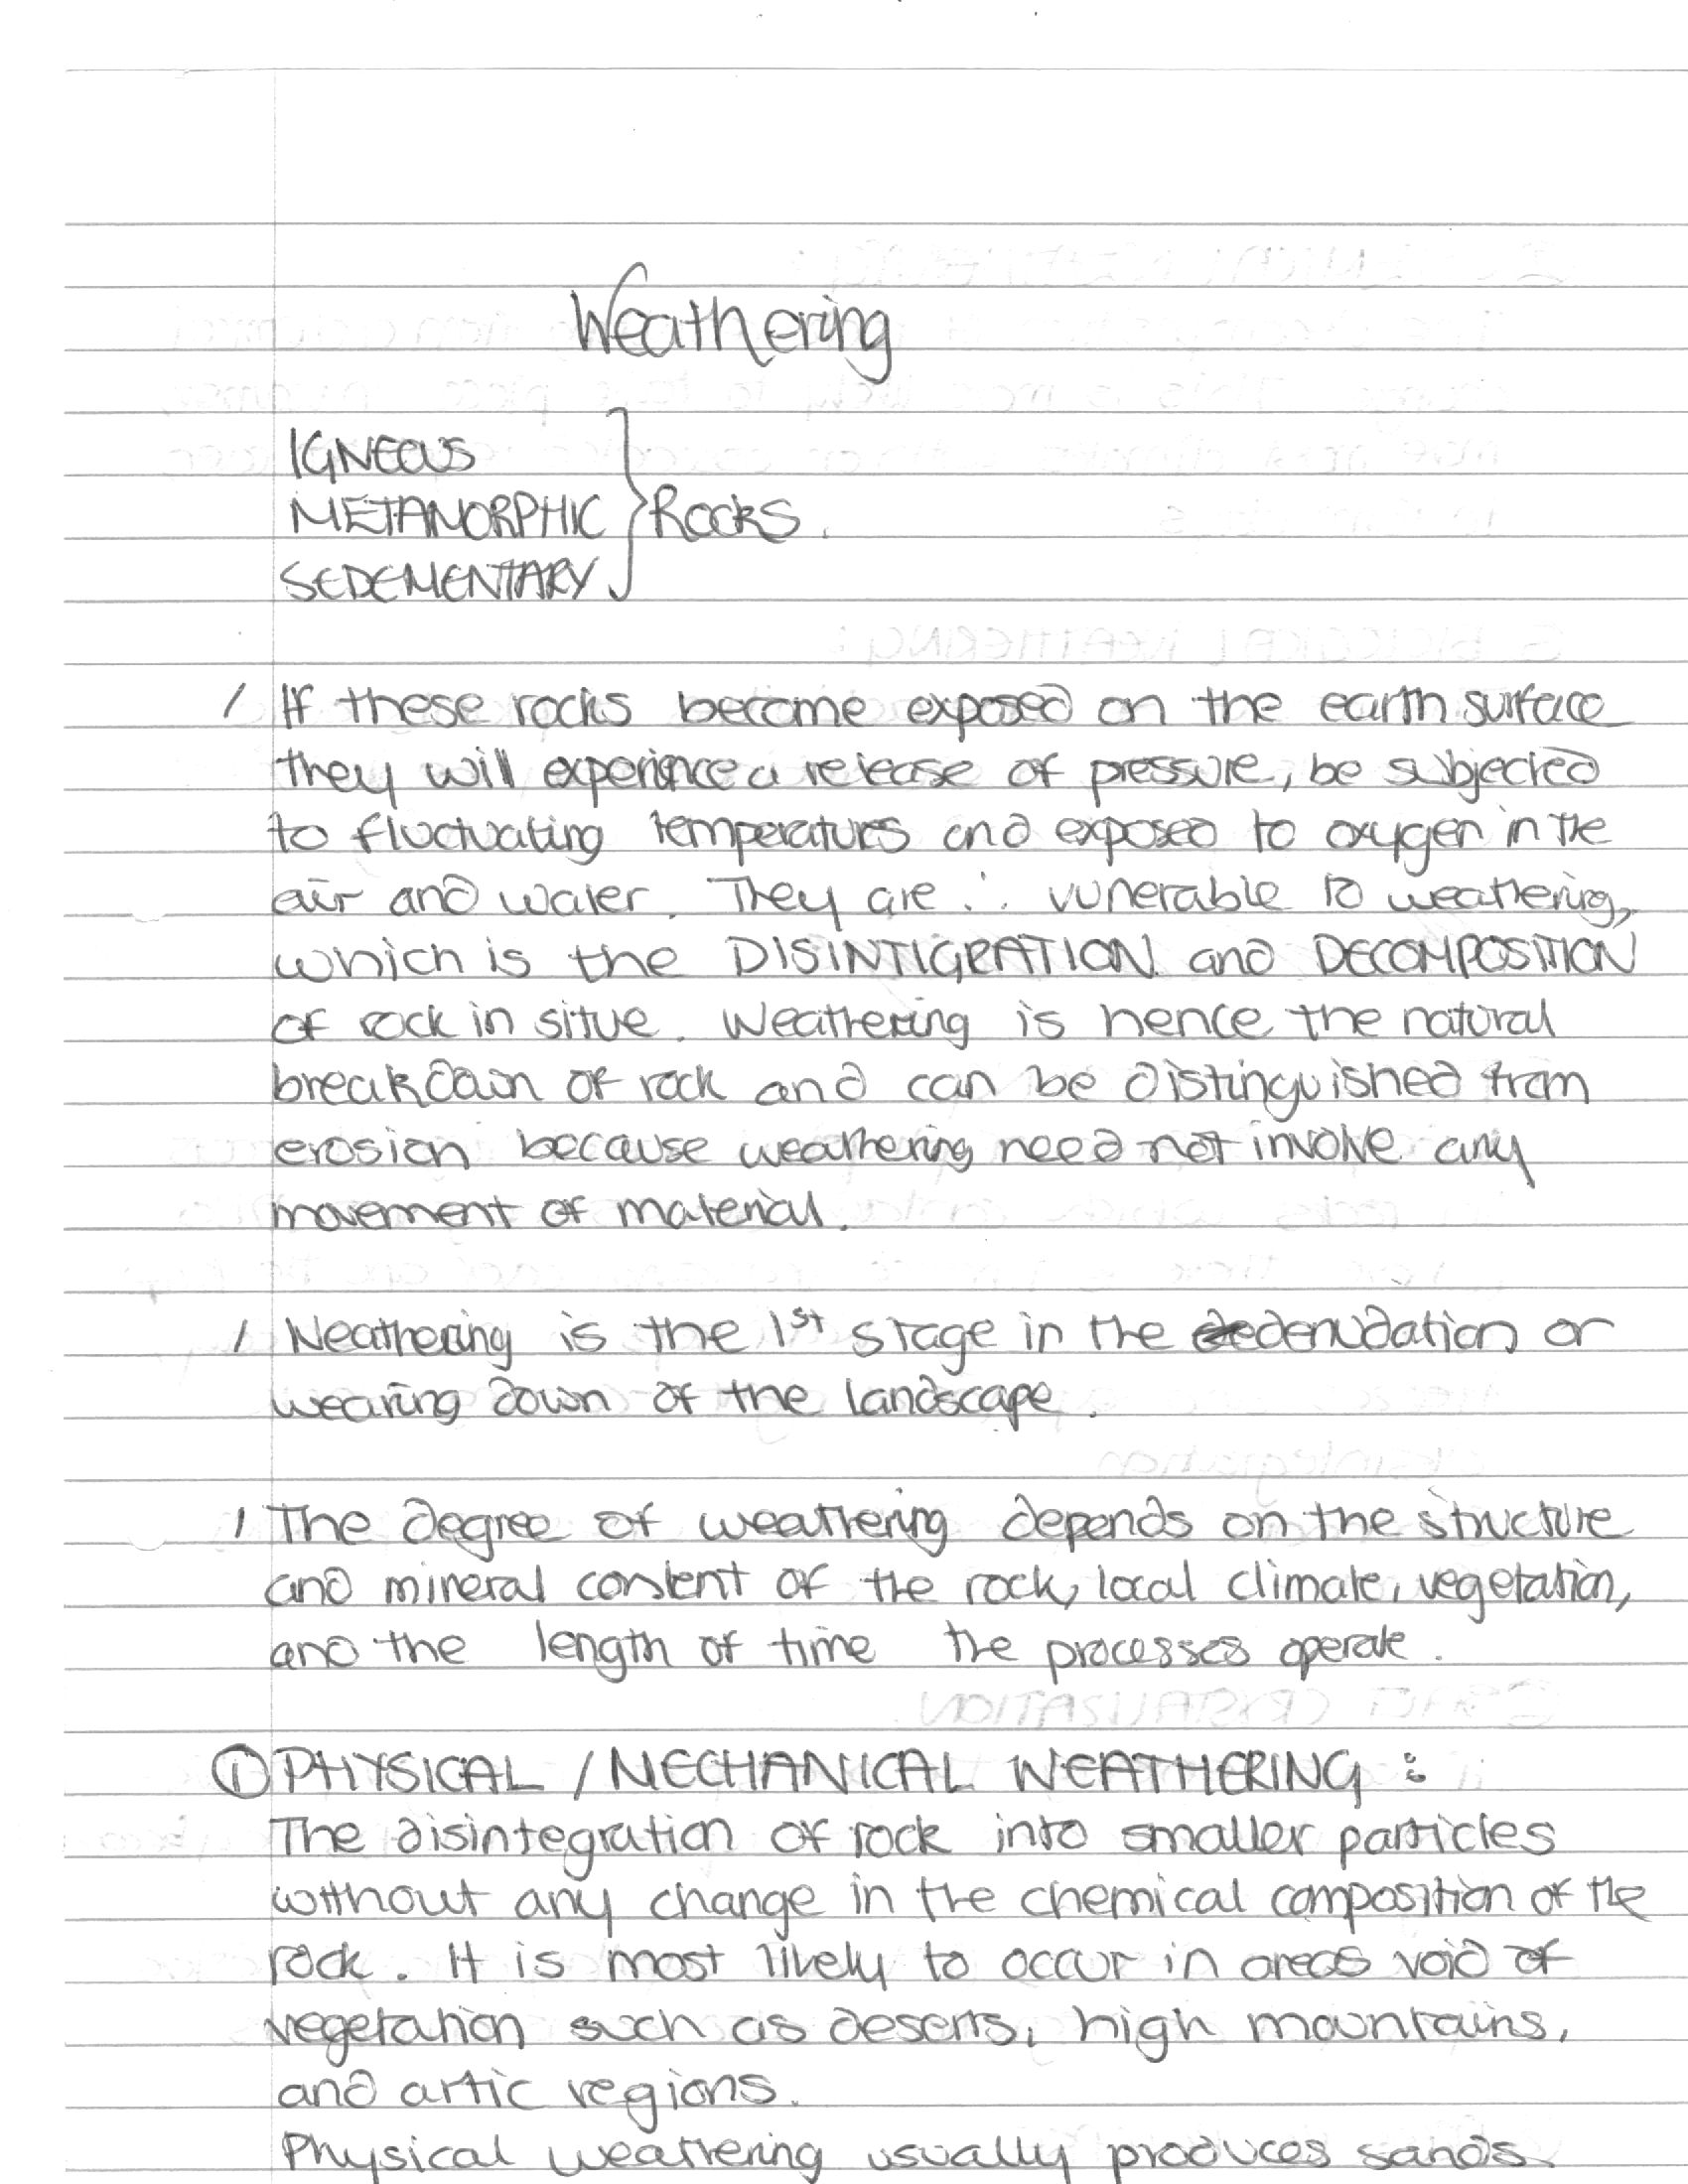 Weathering
IGNEOUS
METAMORPHIC } Rocks.
SEDEMENTARY
/ If these rocks become exposed on the earth surface
they will experience a release of pressure, be subjected
to fluctuating temperatures and exposed to oxygen in the
air and water. They are ∴ vunerable to weathering,
which is the DISINTIGRATION and DECOMPOSITION
of rock in situe. Weathering is hence the natural
breakdown of rock and can be distinguished from
erosion because weathering need not involve any
movement of material.
/ Weathering is the 1st stage in the denudation or
wearing down of the landscape.
/ The degree of weathering depends on the structure
and mineral content of the rock, local climate, vegetation,
and the length of time the processes operate.
① PHYSICAL / MECHANICAL WEATHERING :
The disintegration of rock into smaller particles
without any change in the chemical composition of the
rock. It is most likely to occur in areas void of
vegetation such as deserts, high mountains,
and artic regions.
Physical weathering usually produces sands.